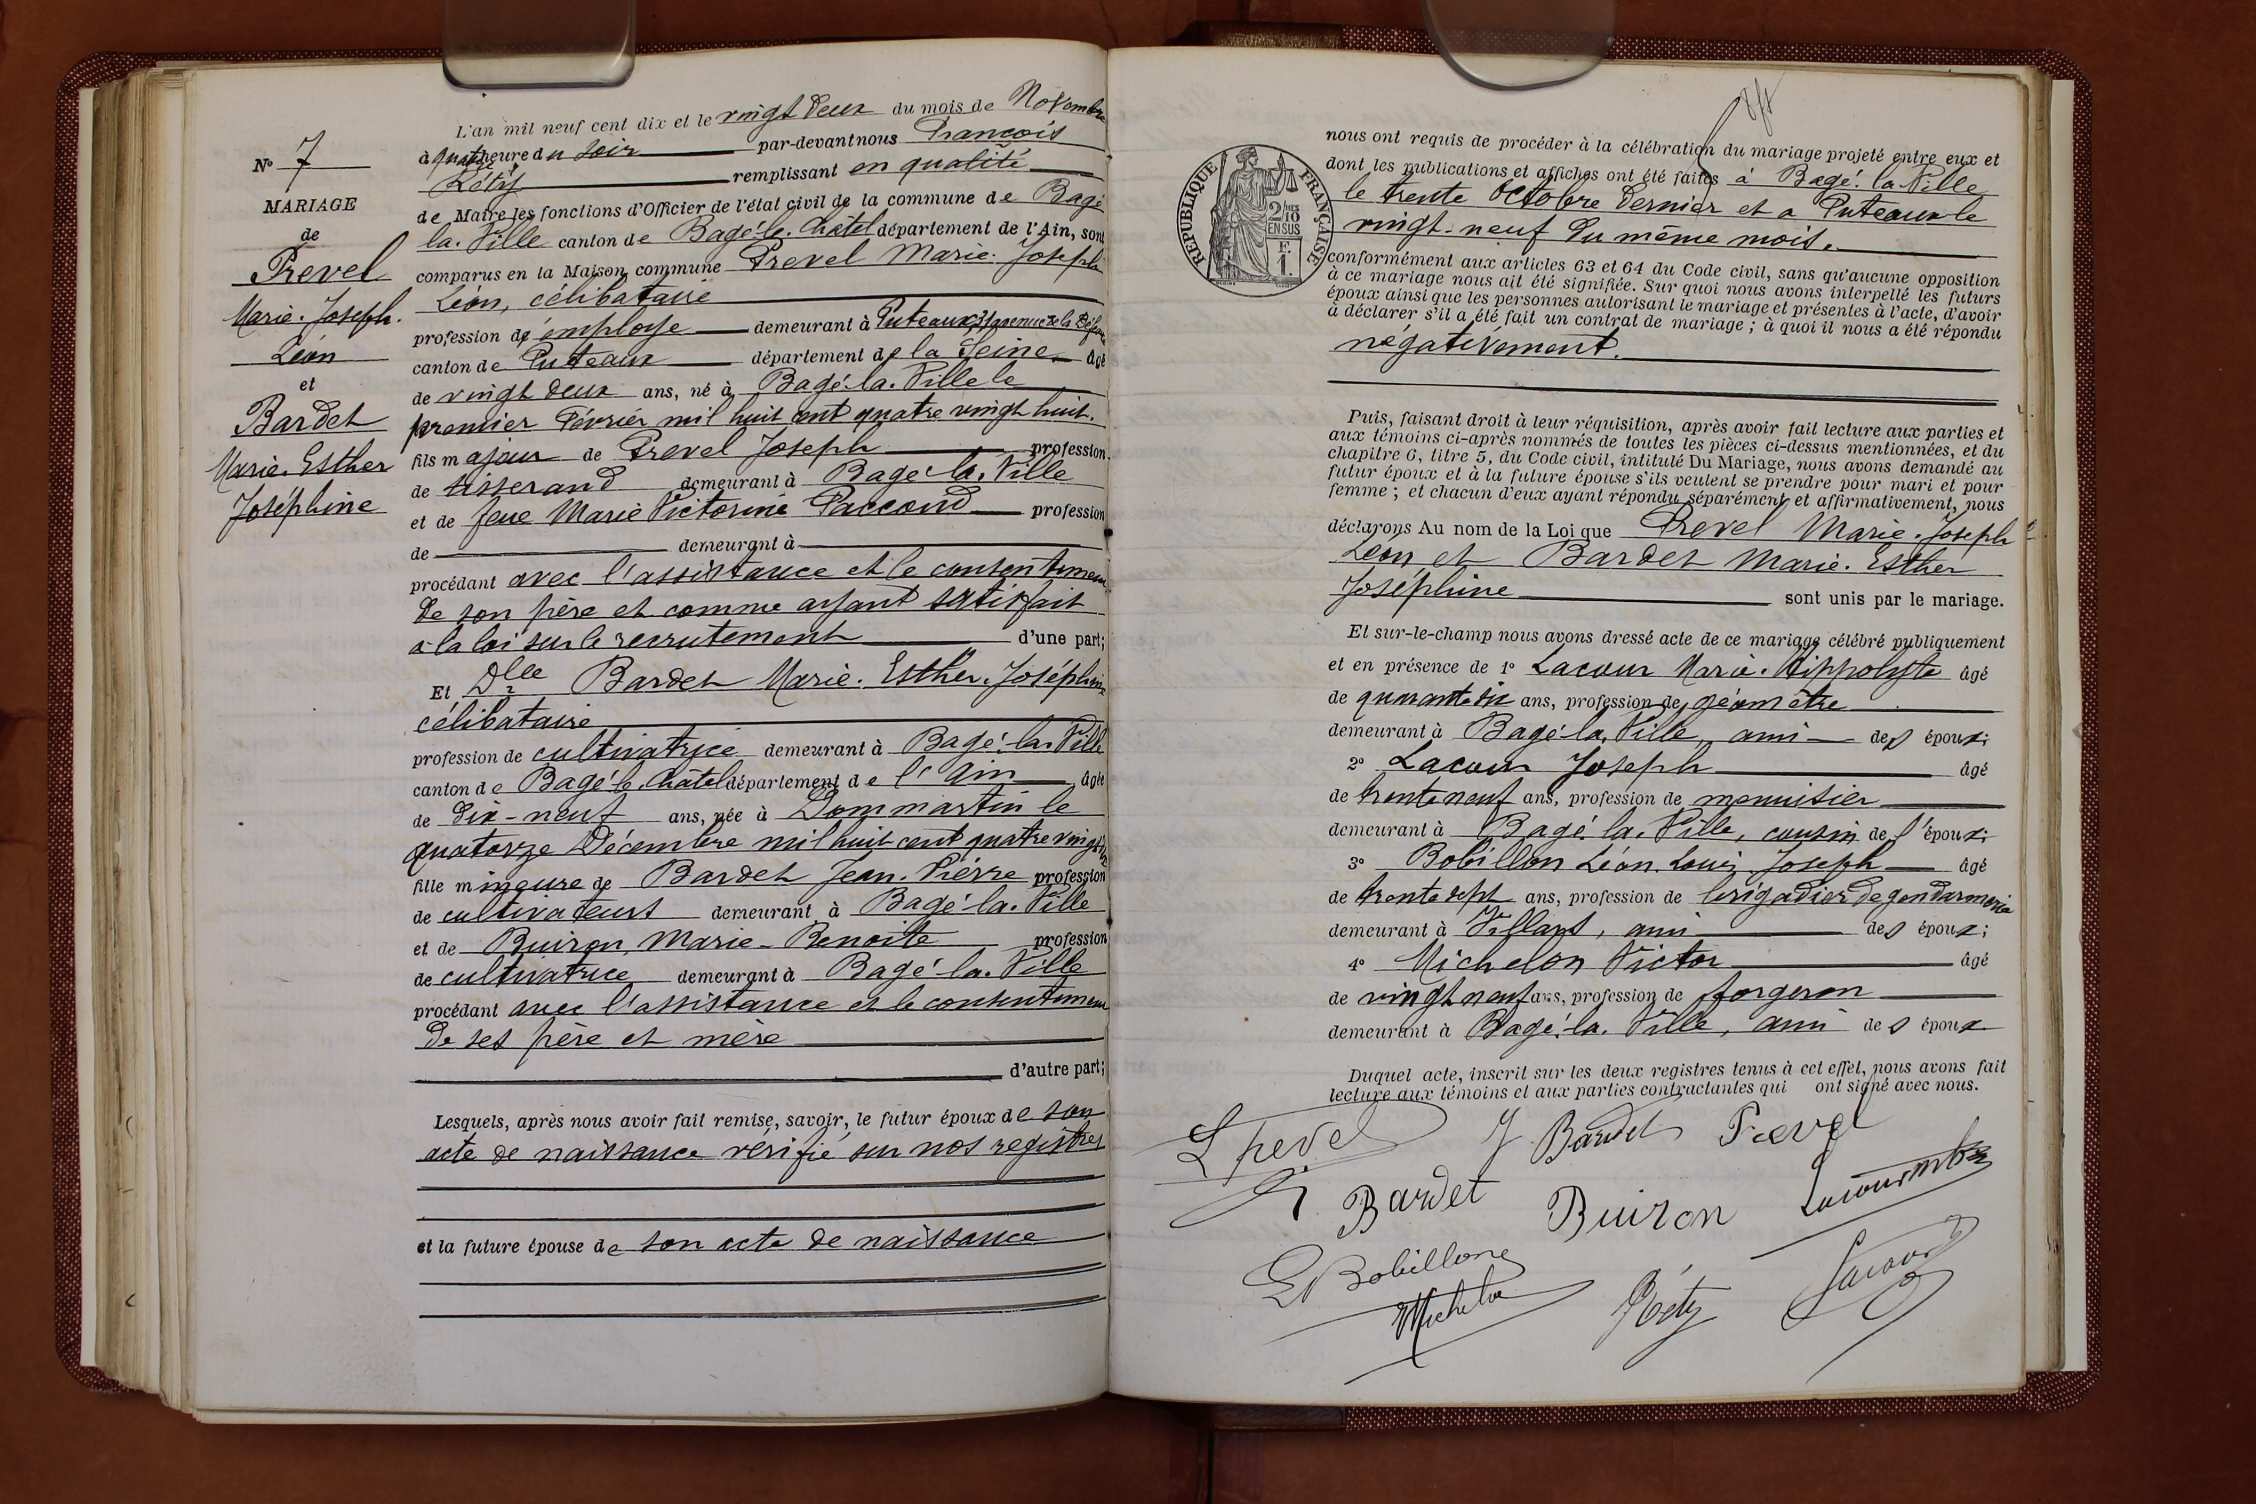 N° 7
MARIAGE
de
Prevel
Marie. Joseph.
Léon
et
Bardet
Marie. Esther
Joséphine
L'an mil neuf cent dix et le vingt deux du mois de Novembre
à quatre heure du soir par-devant nous François
Réty remplissant en qualité
de Maire les fonctions d'Officier de l'état civil de la commune de Bagé
la. Ville canton de Bagé-le. Châtel département de l'Ain, sont
comparus en la Maison commune Prevel Marie. Joseph
Léon, célibataire
profession d'employé demeurant à Puteaux avenue de la Défense
canton de Puteaux département de la Seine âgé
de vingt deux ans, né à Bagé-la. Ville le
premier Février mil huit cent quatre vingt huit.
fils majeur de Prevel Joseph profession
de tisserand demeurant à Bagé-la. Ville
et de feue Marie Victorine Paccoud profession
de demeurant à
procédant avec l'assistance et le consentement
de son père et comme ayant satisfait
à la loi sur le recrutement d'une part;
Et Dlle Bardet Marie. Esther. Joséphine
célibataire
profession de cultivatrice demeurant à Bagé-la. Ville
canton de Bagé-le. Châtel département de l'Ain âgée
de dix-neuf ans, née à Dommartin le
quatorze Décembre mil huit cent quatre vingt dix
fille mineure de Bardet Jean. Pierre profession
de cultivateurs demeurant à Bagé-la. Ville
et de Buiron, Marie-Benoite profession
de cultivatrice demeurant à Bagé-la. Ville
procédant avec l'assistance et le consentement
de ses père et mère
d'autre part;
Lesquels, après nous avoir fait remise, savoir, le futur époux de son
acte de naissance vérifié sur nos registres
et la future épouse de son acte de naissance
REPUBLIQUE FRANÇAISE
2/10 EN SUS
F. 1.
nous ont requis de procéder à la célébration du mariage projeté entre eux et
dont les publications et affiches ont été faites à Bagé-la Ville
le trente Octobre dernier et a Puteaux le
vingt-neuf du même mois.
conformément aux articles 63 et 64 du Code civil, sans qu'aucune opposition
à ce mariage nous ait été signifiée. Sur quoi nous avons interpellé les futurs
époux ainsi que les personnes autorisant le mariage et présentes à l'acte, d'avoir
à déclarer s'il a été fait un contrat de mariage ; à quoi il nous a été répondu
négativement.
Puis, faisant droit à leur réquisition, après avoir fait lecture aux parties et
aux témoins ci-après nommés de toutes les pièces ci-dessus mentionnées, et du
chapitre 6, titre 5, du Code civil, intitulé Du Mariage, nous avons demandé au
futur époux et à la future épouse s'ils veulent se prendre pour mari et pour
femme ; et chacun d'eux ayant répondu séparément et affirmativement, nous
déclarons Au nom de la Loi que Prevel Marie. Joseph
Léon, et Bardet Marie. Esther
Joséphine sont unis par le mariage.
Et sur-le-champ nous avons dressé acte de ce mariage célébré publiquement
et en présence de 1° Lacour Marie. Hippolyte âgé
de quarante six ans, profession de géomètre
demeurant à Bagé-la. Ville, ami des époux;
2° Lacour Joseph âgé
de trente neuf ans, profession de menuisier
demeurant à Bagé-la. Ville, cousin de l'époux;
3° Bobillon Léon. Louis Joseph âgé
de trente sept ans, profession de brigadier de gendarmerie
demeurant à Villars, ami des époux;
4° Michelon Victor âgé
de vingt neuf ans, profession de forgeron
demeurant à Bagé-la. Ville, ami des époux
Duquel acte, inscrit sur les deux registres tenus à cet effet, nous avons fait
lecture aux témoins et aux parties contractantes qui ont signé avec nous.
L Prevel J Bardet Prevel
Bardet Buiron Lacour
L Bobillon
Michelon Réty Lacour